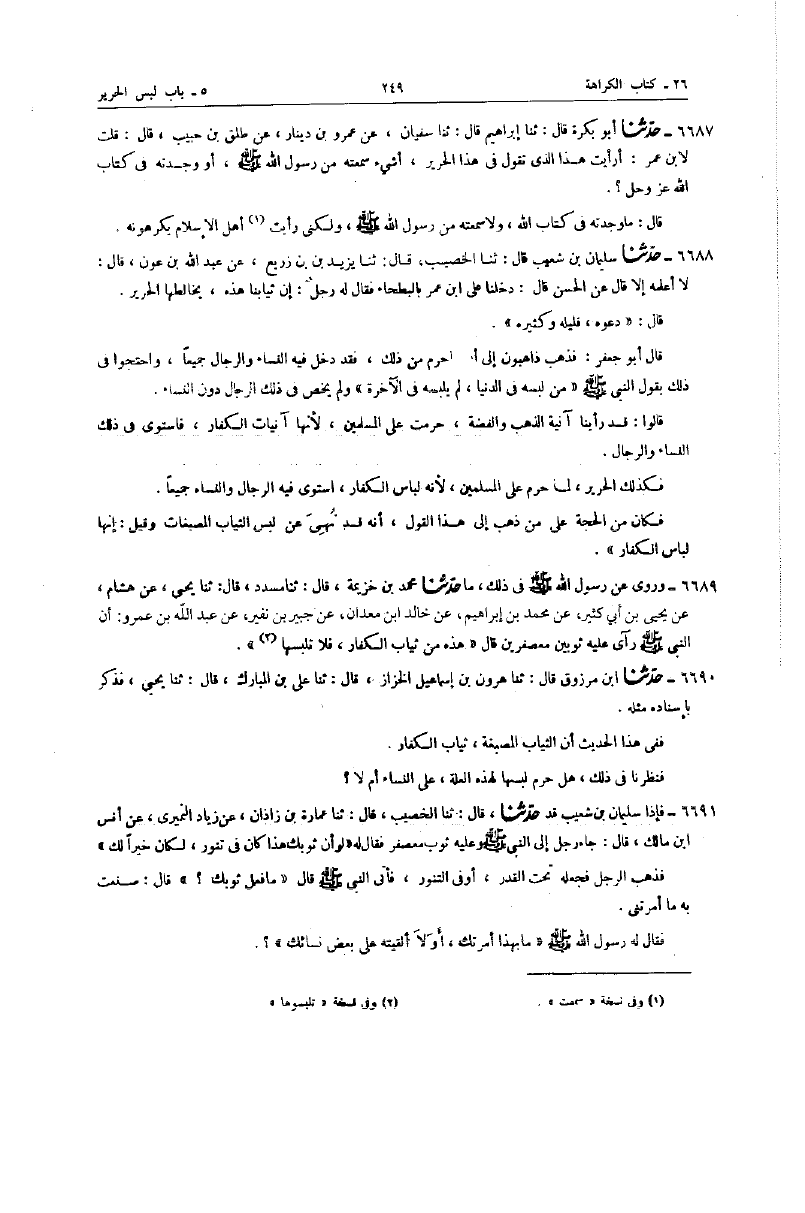 ٢٦ ـ كتاب الكراهة ٢٤٩ ٥ ـ باب لبس الحرير
٦٦٨٧ ـ حدثنا أبو بكرة قال : ثنا إبراهيم قال : ثنا سفيان ، عن عمرو بن دينار ، عن طلق بن حبيب ، قال : قلت
لابن عمر : أرأيت هذا الذى تقول فى هذا الحرير ، أشىء سمعته من رسول الله ﷺ ، أو وجدته فى كتاب
الله عز وجل ؟ .
قال : ماوجدته فى كتاب الله ، ولاسمعته من رسول الله ﷺ ، ولكنى رأيت (١) أهل الإسلام يكرهونه .
٦٦٨٨ ـ حدثنا سليمان بن شعيب قال : ثنا الخصيب، قال: ثنا يزيد بن بن زريع ، عن عبد الله بن عون ، قال :
لا أعلمه إلا قال عن الحسن قال : دخلنا على ابن عمر بالبطحاء فقال له رجل : إن ثيابنا هذه ، يخالطها الحرير .
قال : « دعوه ، قليله وكثيره » .
قال أبو جعفر : فذهب ذاهبون إلى أ حرم من ذلك ، فقد دخل فيه النساء والرجال جميعاً ، واحتجوا فى
ذلك بقول النبى ﷺ « من لبسه فى الدنيا ، لم يلبسه فى الآخرة » ولم يخص فى ذلك الرجال دون النساء .
قالوا : قد رأينا آنية الذهب والفضة ، حرمت على المسلمين ، لأنها آنيات الكفار ، فاستوى فى ذلك
النساء والرجال .
فكذلك الحرير ، لما حرم على المسلمين ، لأنه لباس الكفار ، استوى فيه الرجال والنساء جميعاً .
فكان من الحجة على من ذهب إلى هذا القول ، أنه قد نُهِىَ عن لبس الثياب المصبغات وقيل : إنها
لباس الكفار » .
٦٦٨٩ ـ وروى عن رسول الله ﷺ فى ذلك، ما حدثنا محمد بن خزيمة ، قال : ثنا مسدد ، قال: ثنا يحيى ، عن هشام ،
عن يحيى بن أبي كثير، عن محمد بن إبراهيم، عن خالد ابن معدان، عن جبير بن نفير، عن عبد الله بن عمرو: أن
النبى ﷺ رأى عليه ثوبين معصفرين قال « هذه من ثياب الكفار ، فلا تلبسها (٢) » .
٦٦٩٠ ـ حدثنا ابن مرزوق قال : ثنا هرون بن إسماعيل الخزاز ، قال : ثنا على بن المبارك ، قال : ثنا يحيى ، فذكر
بإسناده مثله .
ففى هذا الحديث أن الثياب المصبغة ، ثياب الكفار .
فنظرنا فى ذلك ، هل حرم لبسها لهذه العلة ، على النساء أم لا ؟
٦٦٩١ ـ فإذا سليمان بن شعيب قد حدثنا ، قال : ثنا الخصيب ، قال : ثنا عمارة بن زاذان ، عن زياد النميرى ، عن أنس
ابن مالك ، قال : جاء رجل إلى النبى ﷺ وعليه ثوب معصفر فقال له « لو أن ثوبك هذا كان فى تنور ، لكان خيراً لك »
فذهب الرجل فجعله تحت القدر ، أوفى التنور ، فأتى النبى ﷺ قال « مافعل ثوبك ؟ » قال : صنعت
به ما أمرتنى .
فقال له رسول الله ﷺ « ما بهذا أمرتك ، أَوَلاَ ألقيته على بعض نسائك » ؟ .
(١) وفى نسخة « سمعت » . (٢) وفى نسخة « تلبسوها »